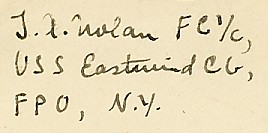 J. X. Nolan FC 1/c,
USS Eastwind CG,
FPO, N.Y.